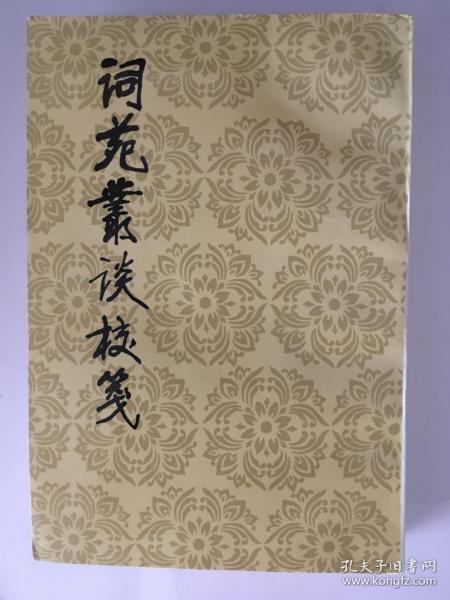 词苑叢谈校笺
孔夫子旧书网
www.kongfz.com